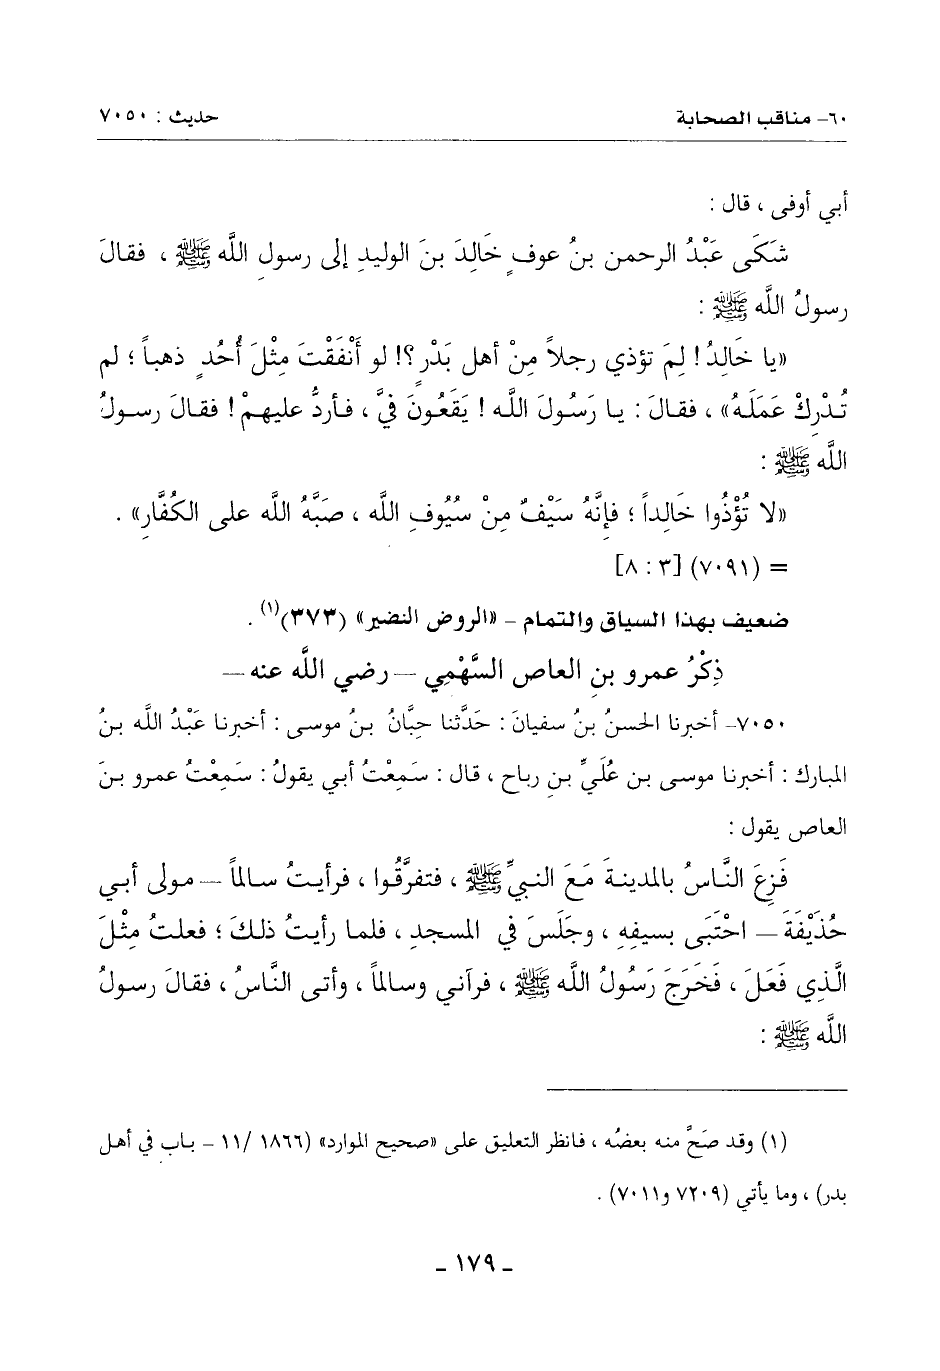 ٦٠- مناقب الصحابة حديث : ٧٠٥٠
أبي أوفى ، قال :
شَكَى عَبْدُ الرحمن بنُ عوفٍ خَالِدَ بنَ الوليدِ إلى رسولِ اللَّه ﷺ ، فقالَ
رسولُ اللَّه ﷺ :
«يا خَالِدُ! لِمَ تؤذي رجلاً مِنْ أهلِ بَدْرٍ؟! لو أَنْفَقْتَ مِثْلَ أُحُدٍ ذهباً ؛ لم
تُدْرِكْ عَمَلَهُ» ، فقالَ : يا رَسُولَ اللَّه ! يَقَعُونَ فيَّ ، فأردُّ عليهِمْ! فقالَ رسولُ
اللَّه ﷺ :
«لا تُؤْذُوا خَالِداً ؛ فإنَّهُ سَيْفٌ مِنْ سُيُوفِ اللَّه ، صَبَّهُ اللَّه على الكُفَّارِ» .
= (٧٠٩١) [٣ : ٨]
ضعيف بهذا السياق والتمام – «الروض النضير» (٣٧٣)(١) .
ذِكْرُ عمرو بنِ العاص السَّهْمِي — رضي اللَّه عنه —
٧٠٥٠– أخبرنا الحسنُ بنُ سفيانَ : حَدَّثنا حِبَّانُ بنُ موسى : أخبرنا عَبْدُ اللَّه بنُ
المبارك : أخبرنا موسى بن عُلَيِّ بنِ رباح ، قال : سَمِعْتُ أبي يقولُ : سَمِعْتُ عمرو بنَ
العاص يقول :
فَزِعَ النَّاسُ بالمدينةِ مَعَ النبيِّ ﷺ ، فتفرَّقُوا ، فرأيتُ سالماً — مولى أبي
حُذَيْفَةَ — احْتَبَى بسيفِهِ ، وجَلَسَ في المسجدِ ، فلما رأيتُ ذلكَ ؛ فعلتُ مِثْلَ
الَّذِي فَعَلَ ، فَخَرَجَ رَسُولُ اللَّه ﷺ ، فرآني وسالماً ، وأتى النَّاسُ ، فقالَ رسولُ
اللَّه ﷺ :
(١) وقد صَحَّ منه بعضُه ، فانظر التعليق على «صحيح الموارد» (١٨٦٦ /١١ – باب في أهل
بدر) ، وما يأتي (٧٢٠٩ و٧٠١١) .
- ١٧٩ -